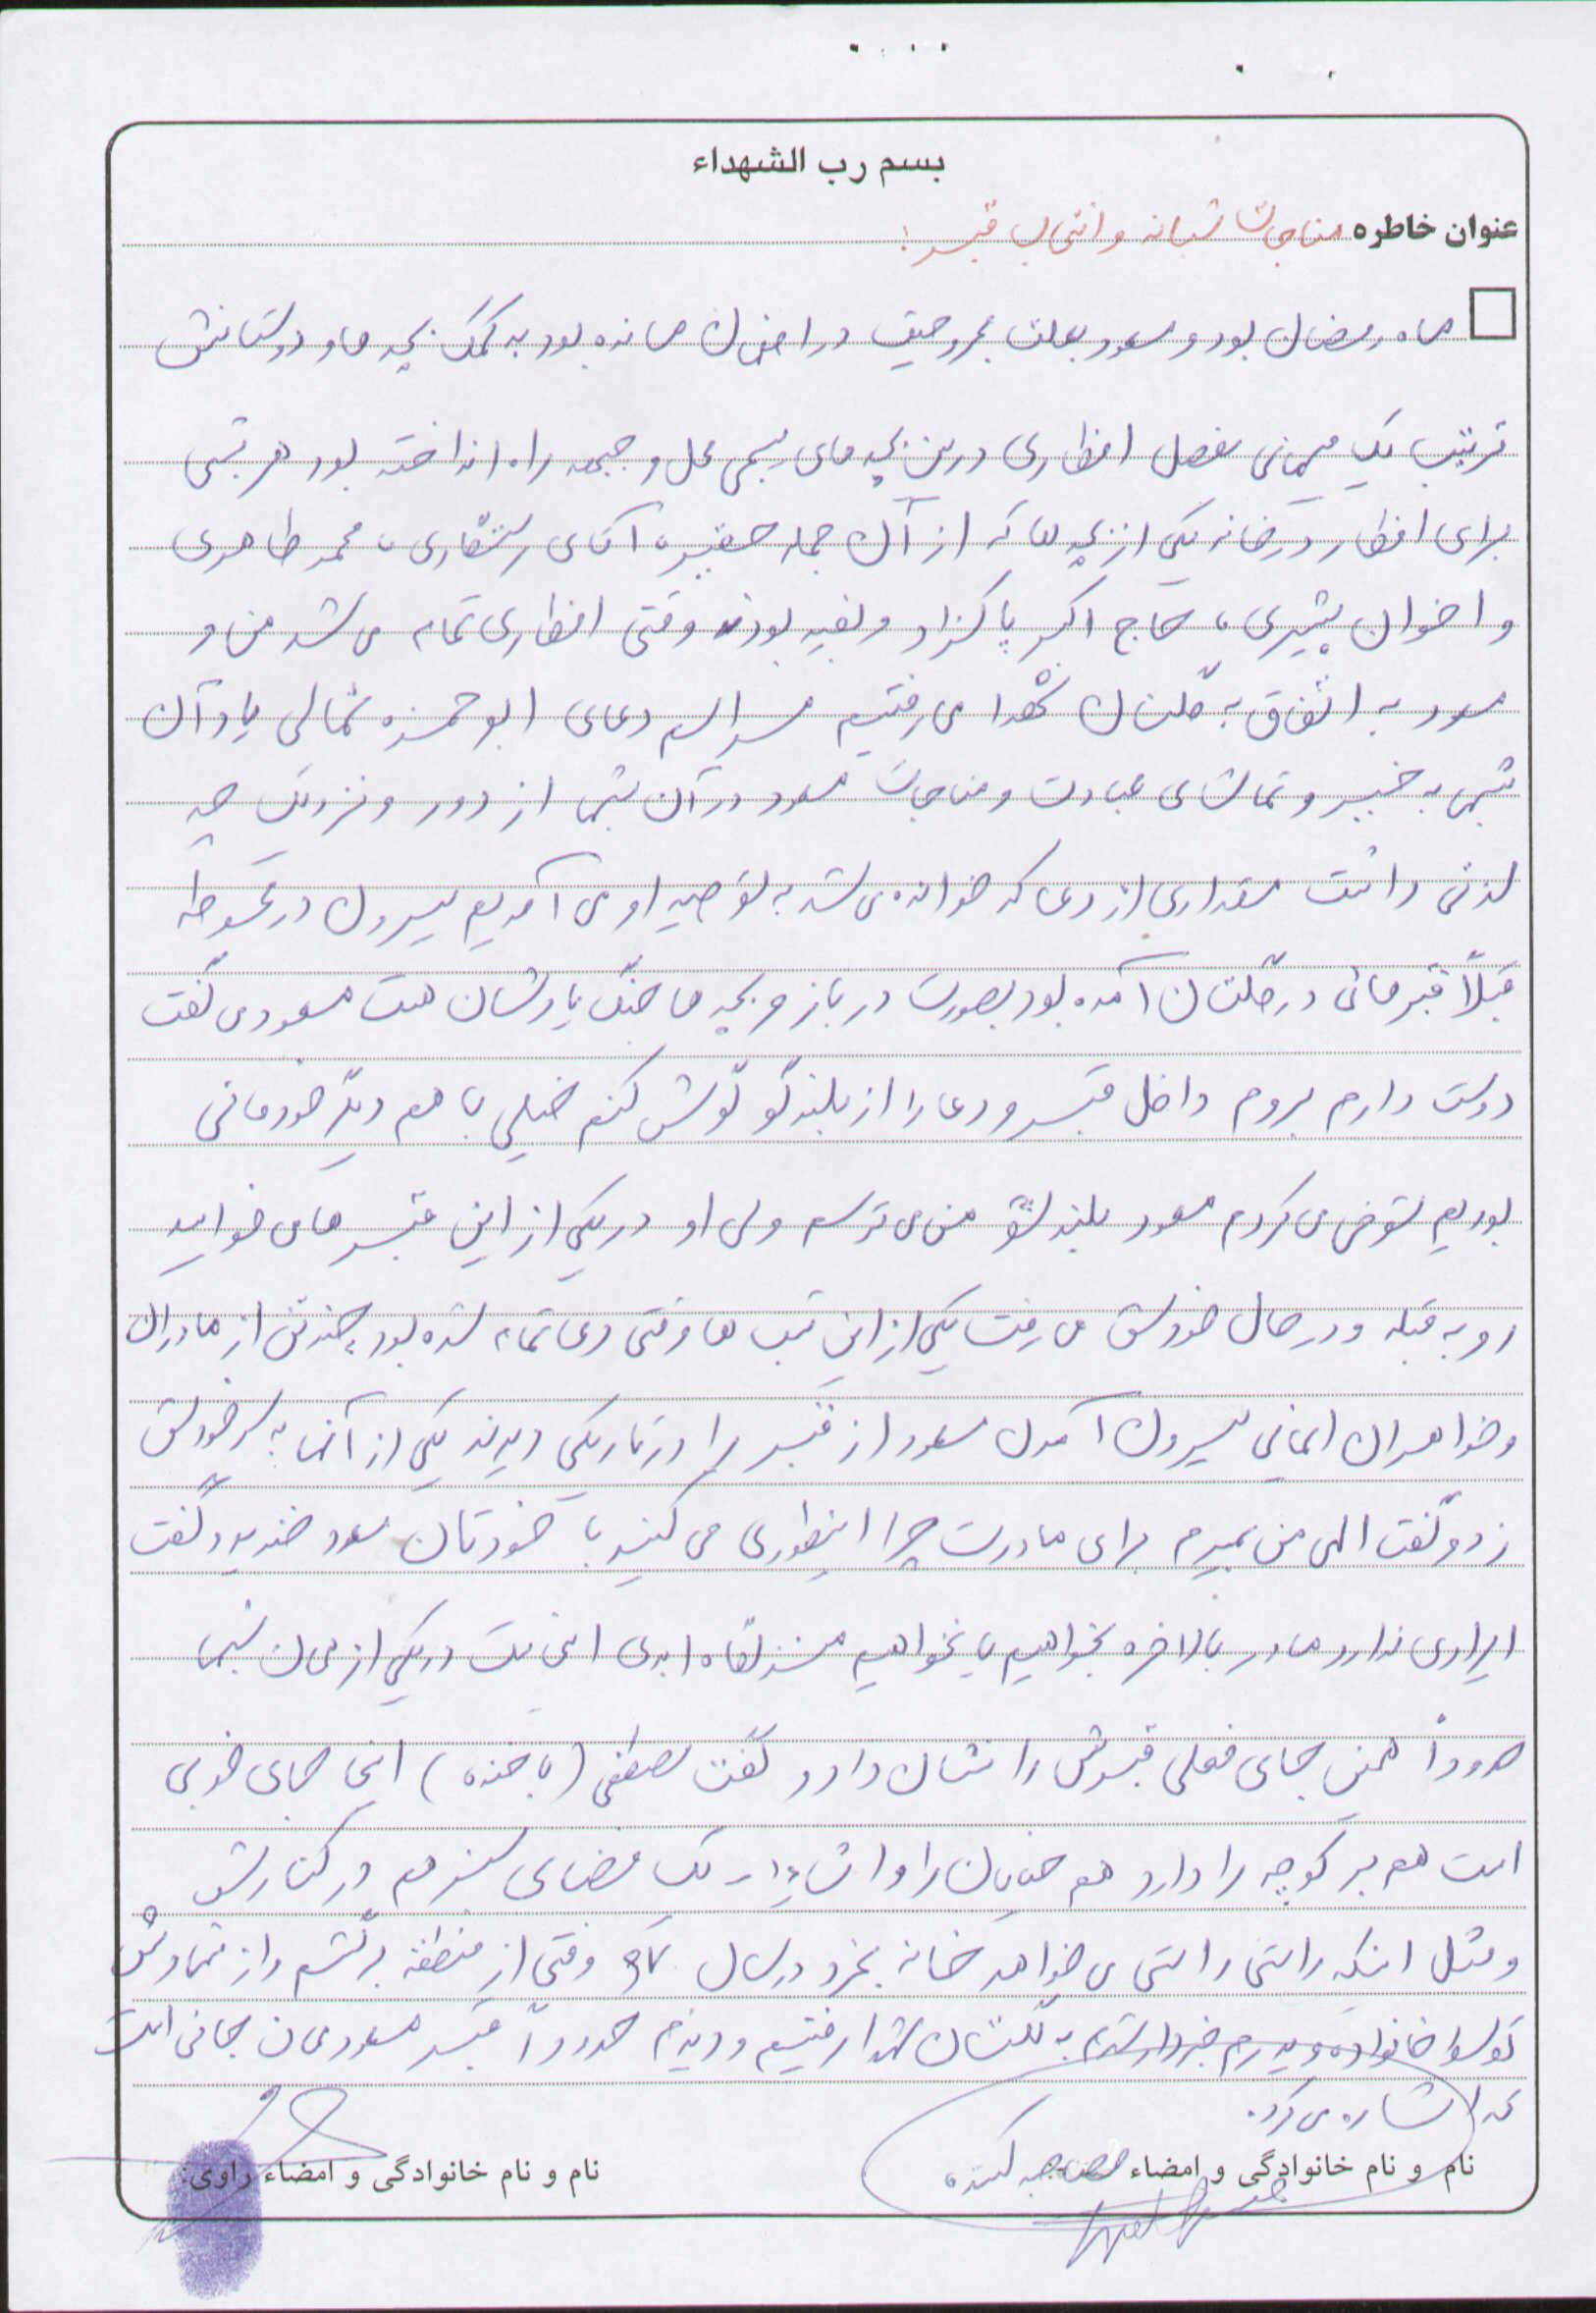 بسم رب الشهداء
عنوان خاطره مناجات شبانه و انتخاب قبر!
ماه رمضان بود و مسعود بعلت مجروحیت در اصفهان مانده بود به کمک بچه ها و دوستانش
ترتیب یک میهمانی مفصل افطاری در بین بچه های بسیجی محل و جبهه راه انداخته بود هر شبی
برای افطار در خانه یکی از بچه ها که از آن جمله حقیر، آقای رستگاری، محمد طاهری
و اخوان بشیری، حاج اکبر پاکزاد و بقیه بودند وقتی افطاری تمام می شد من و
مسعود به اتفاق به گلستان شهدا می رفتیم مراسم دعای ابوحمزه ثمالی یاد آن
شبها به خیر و تماشای عبادت و مناجات مسعود در آن شبها از دور و نزدیک چه
لذتی داشت مقداری از دعا که خوانده می شد به توصیه او می آمدیم بیرون در محوطه
قبلاً قبرهائی در گلستان آماده بود بصورت در باز و بچه ها جنگ یادشان هست مسعود می گفت
دوست دارم بروم داخل قبر و دعا را از بلندگو گوش کنم خیلی با هم دیگر خودمانی
بودیم شوخی می کردم مسعود بلند شو من می ترسم ولی او در یکی از این قبرها می خوابید
رو به قبله و در حال خودش می رفت یکی از این شب ها وقتی دعا تمام شده بود، چند تن از مادران
و خواهران ایمانی بیرون آمدن مسعود از قبر را در تاریکی دیدند یکی از آنها به سر خودش
زد و گفت الهی من بمیرم برای مادرت چرا اینطوری می کنید با خودتان مسعود خندید و گفت
ایرادی ندارد مادر بالاخره بخواهیم یا نخواهیم منزلگاه ابدی اینجاست در یکی از همان شبها
حدوداً همین جای فعلی قبرش را نشان داد و گفت مصطفی (با خنده) اینجا جای خوبی
است هم بر کوچه را دارد هم خیابان را و انشاءا... یک فضای سبز هم در کنارش
و مثل اینکه راستی راستی می خواهد خانه بخرد در سال ۶۷ وقتی از منطقه برگشتم و از شهادتش
توسط خانواده و پدرم خبردار شدم به گلستان شهدا رفتیم و دیدم حدوداً قبر مسعود همان جائی است
که اشاره می کرد.
نام و نام خانوادگی و امضاء مصاحبه کننده
نام و نام خانوادگی و امضاء راوی: